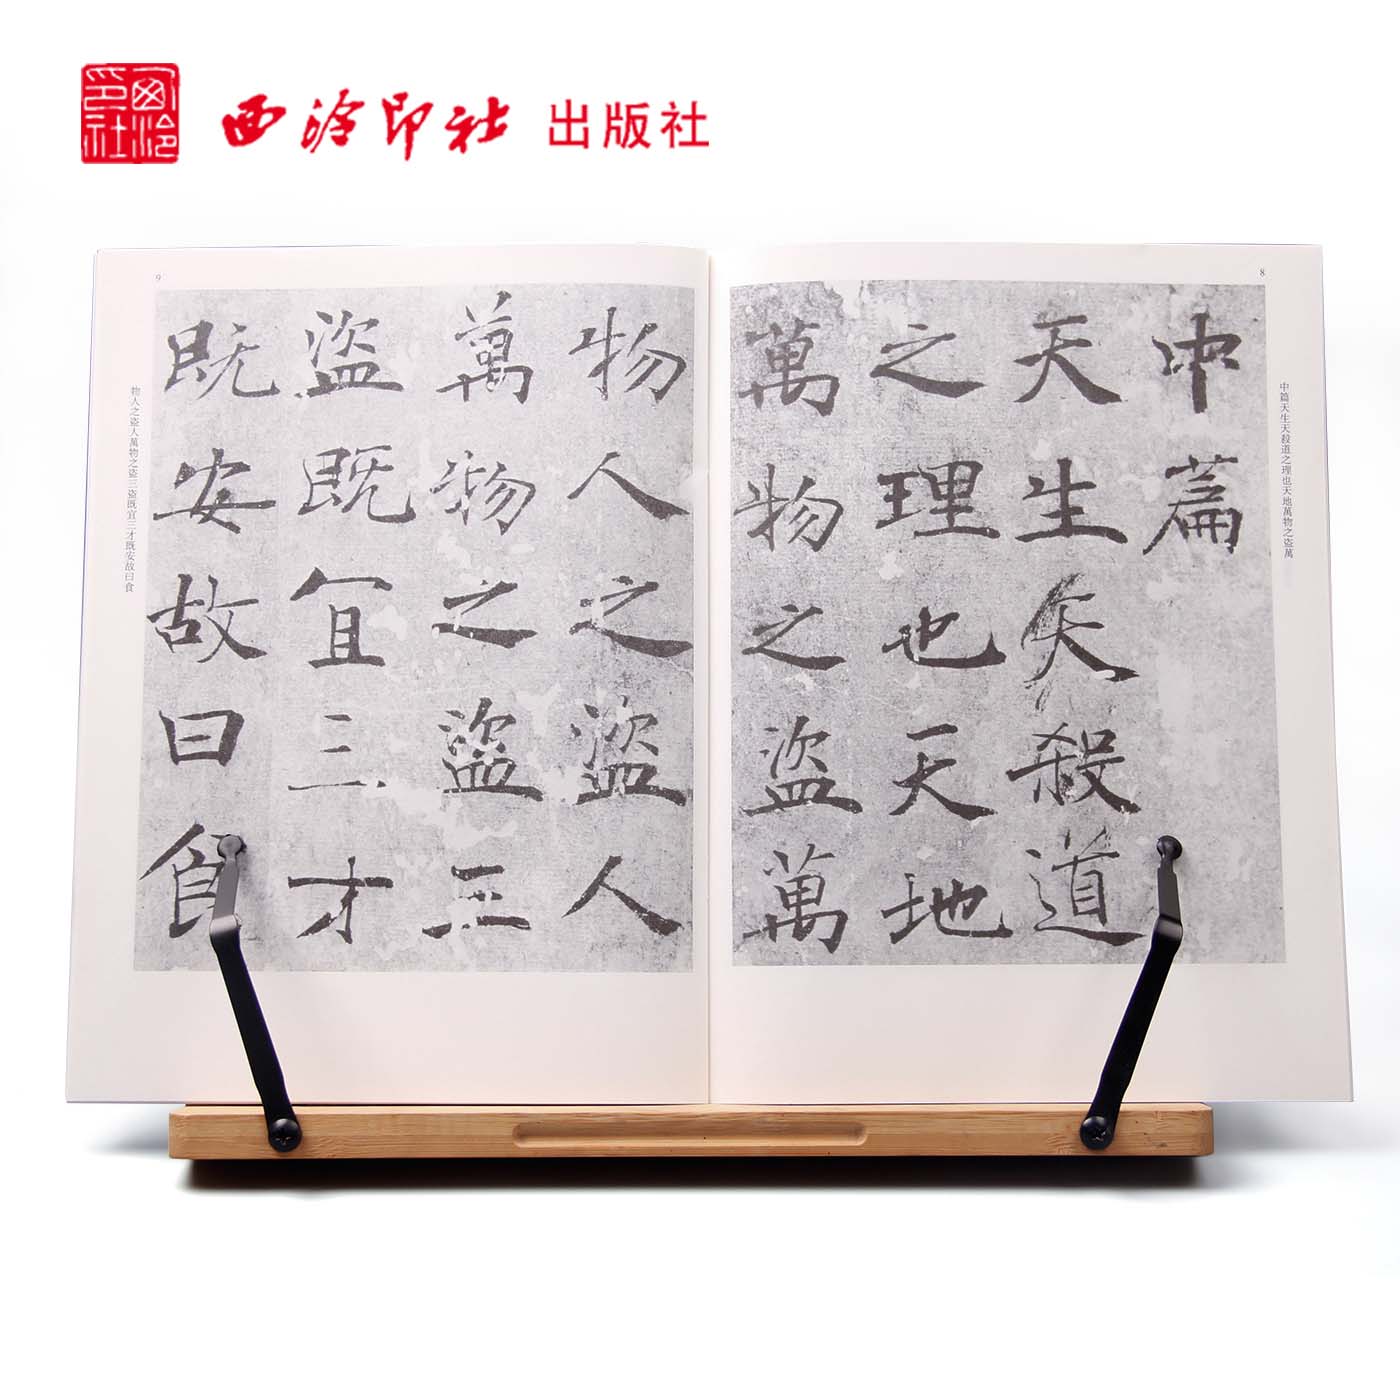 西泠印社
西泠印社出版社
8
中篇
天生天殺道
之理也天地
萬物之盜萬
中篇天生天殺道之理也天地萬物之盜萬
9
物人之盜人
萬物之盜三
盜既宜三才
既安故曰食
物人之盜人萬物之盜三盜既宜三才既安故曰食